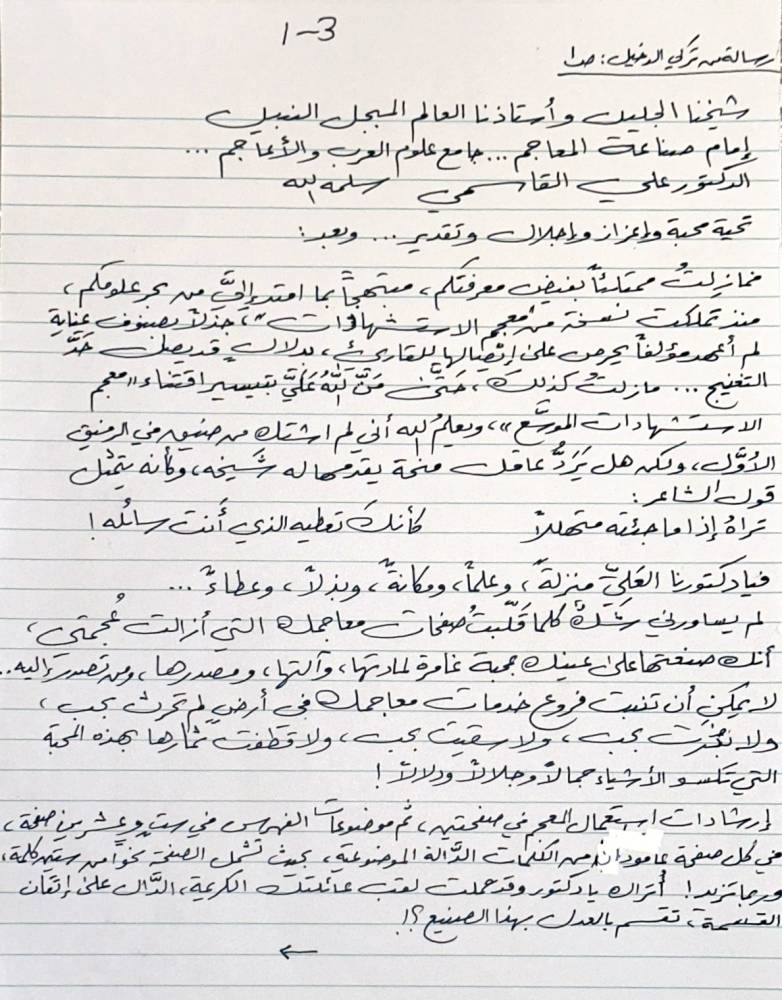 1-3
رسالة من تركي الدخيل: ص١
شيخنا الجليل وأستاذنا العالم المبجل النبيل
إمام صناعة المعاجم... جامع علوم العرب والأعاجم...
الدكتور علي القاسمي سلمه الله
تحية محبة وإعزاز وإجلال وتقدير... وبعد:
فمازلتُ ممتلئاً بفيض معرفتكم، مبتهجاً بما امتد إليَّ من بحر علومكم،
منذ تملكت نسخة من «معجم الاستشهادات»، جذلاً بصنوف عناية
لم أعهد مؤلفاً يحرص على إيصالها للقارئ، بدلالٍ قد يصل حَدَّ
التغنيج... مازلتُ كذلك، حَتَّى مَنَّ اللّهُ عَلَيَّ بتيسير اقتناء «معجم
الاستشهادات الموسَّع»، ويعلمُ الله أني لم اشتك من ضيق في الرفيق
الأوَّل، ولكن هل يَرَدُّ عاقل منحة يقدمها له شَيخه، وكأنه يتمثل
قول الشاعر:
تراهُ إذا ما جئته متهللاً كأنك تعطيه الذي أنت سائله!
فيا دكتورنا العَليَّ منزلةً، وعلماً، ومكانةً، وبذلاً، وعطاءً...
لم يساورني شَكٌ كلما قَلّبتُ صفحات معاجمك التي أزالت عُجمتي،
أنك صنعتها على عينك بمحبة غامرة لمادتها، وآلتها، ومصدرها، ومن تصدر إليه..
لا يمكن أن تنبت فروع خدمات معاجمك في أرض لم تحرث بحب،
ولا بُذرت بحب، ولا سقيت بحب، ولا قطفت ثمارها بهذه المحبة
التي تكسو الأشياء جمالاً وجلالاً ودلالاً!
إرشادات استعمال المعجم في صفحتين، ثم موضوعات الفهرس في ستٍ وعشرين صفحة،
في كل صفحة عامودان من الكلمات الدَّالة الموضوعية، بحيث تشمل الصفحة نحواً من ستين كلمة،
وربما تزيد! أتراك يا دكتور وقد حملت لقب عائلتك الكريمة، الدَّال على إتقان
القسمة، تقسم بالعدل بهذا الصنيع؟!
←